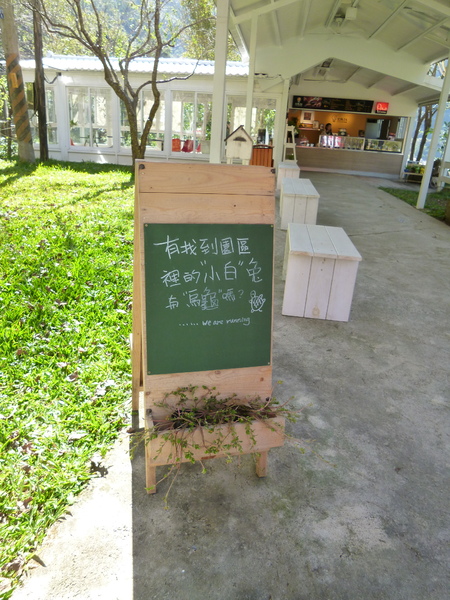 有找到園區
裡的"小白"兔
有"烏龜"嗎?
...... we are missing